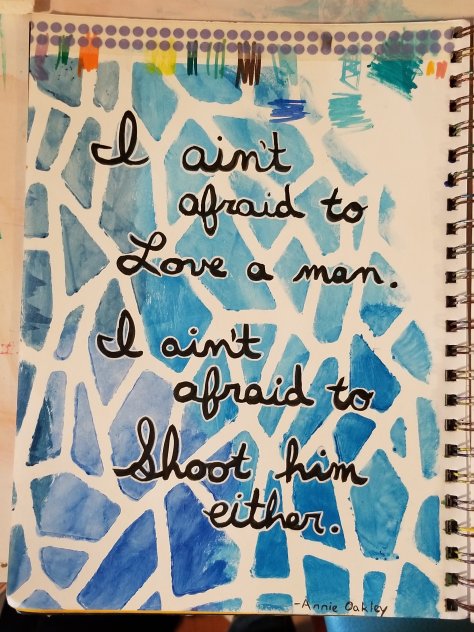 I ain't
afraid to
Love a man.
I ain't
afraid to
Shoot him
either.
-Annie Oakley